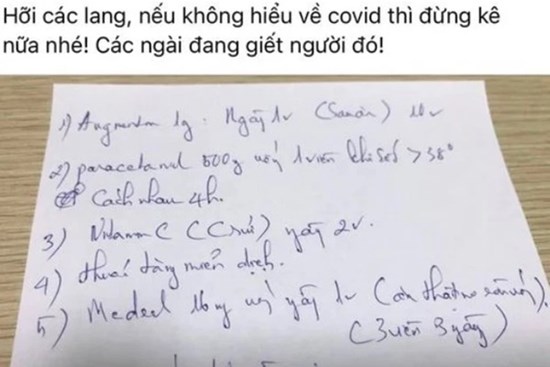 Hỡi các lang, nếu không hiểu về covid thì đừng kê
nữa nhé! Các ngài đang giết người đó!
1) Augmentin 1g : Ngày 1v 10v
2) paracetamol 500g uống 1 viên khi sốt >38°
Cách nhau 4h.
3) Vitamin C (C sủi) ngày 2v.
4) thuốc tăng miễn dịch.
5) Medrol 16mg uống ngày 1v
(3 viên 3 ngày)